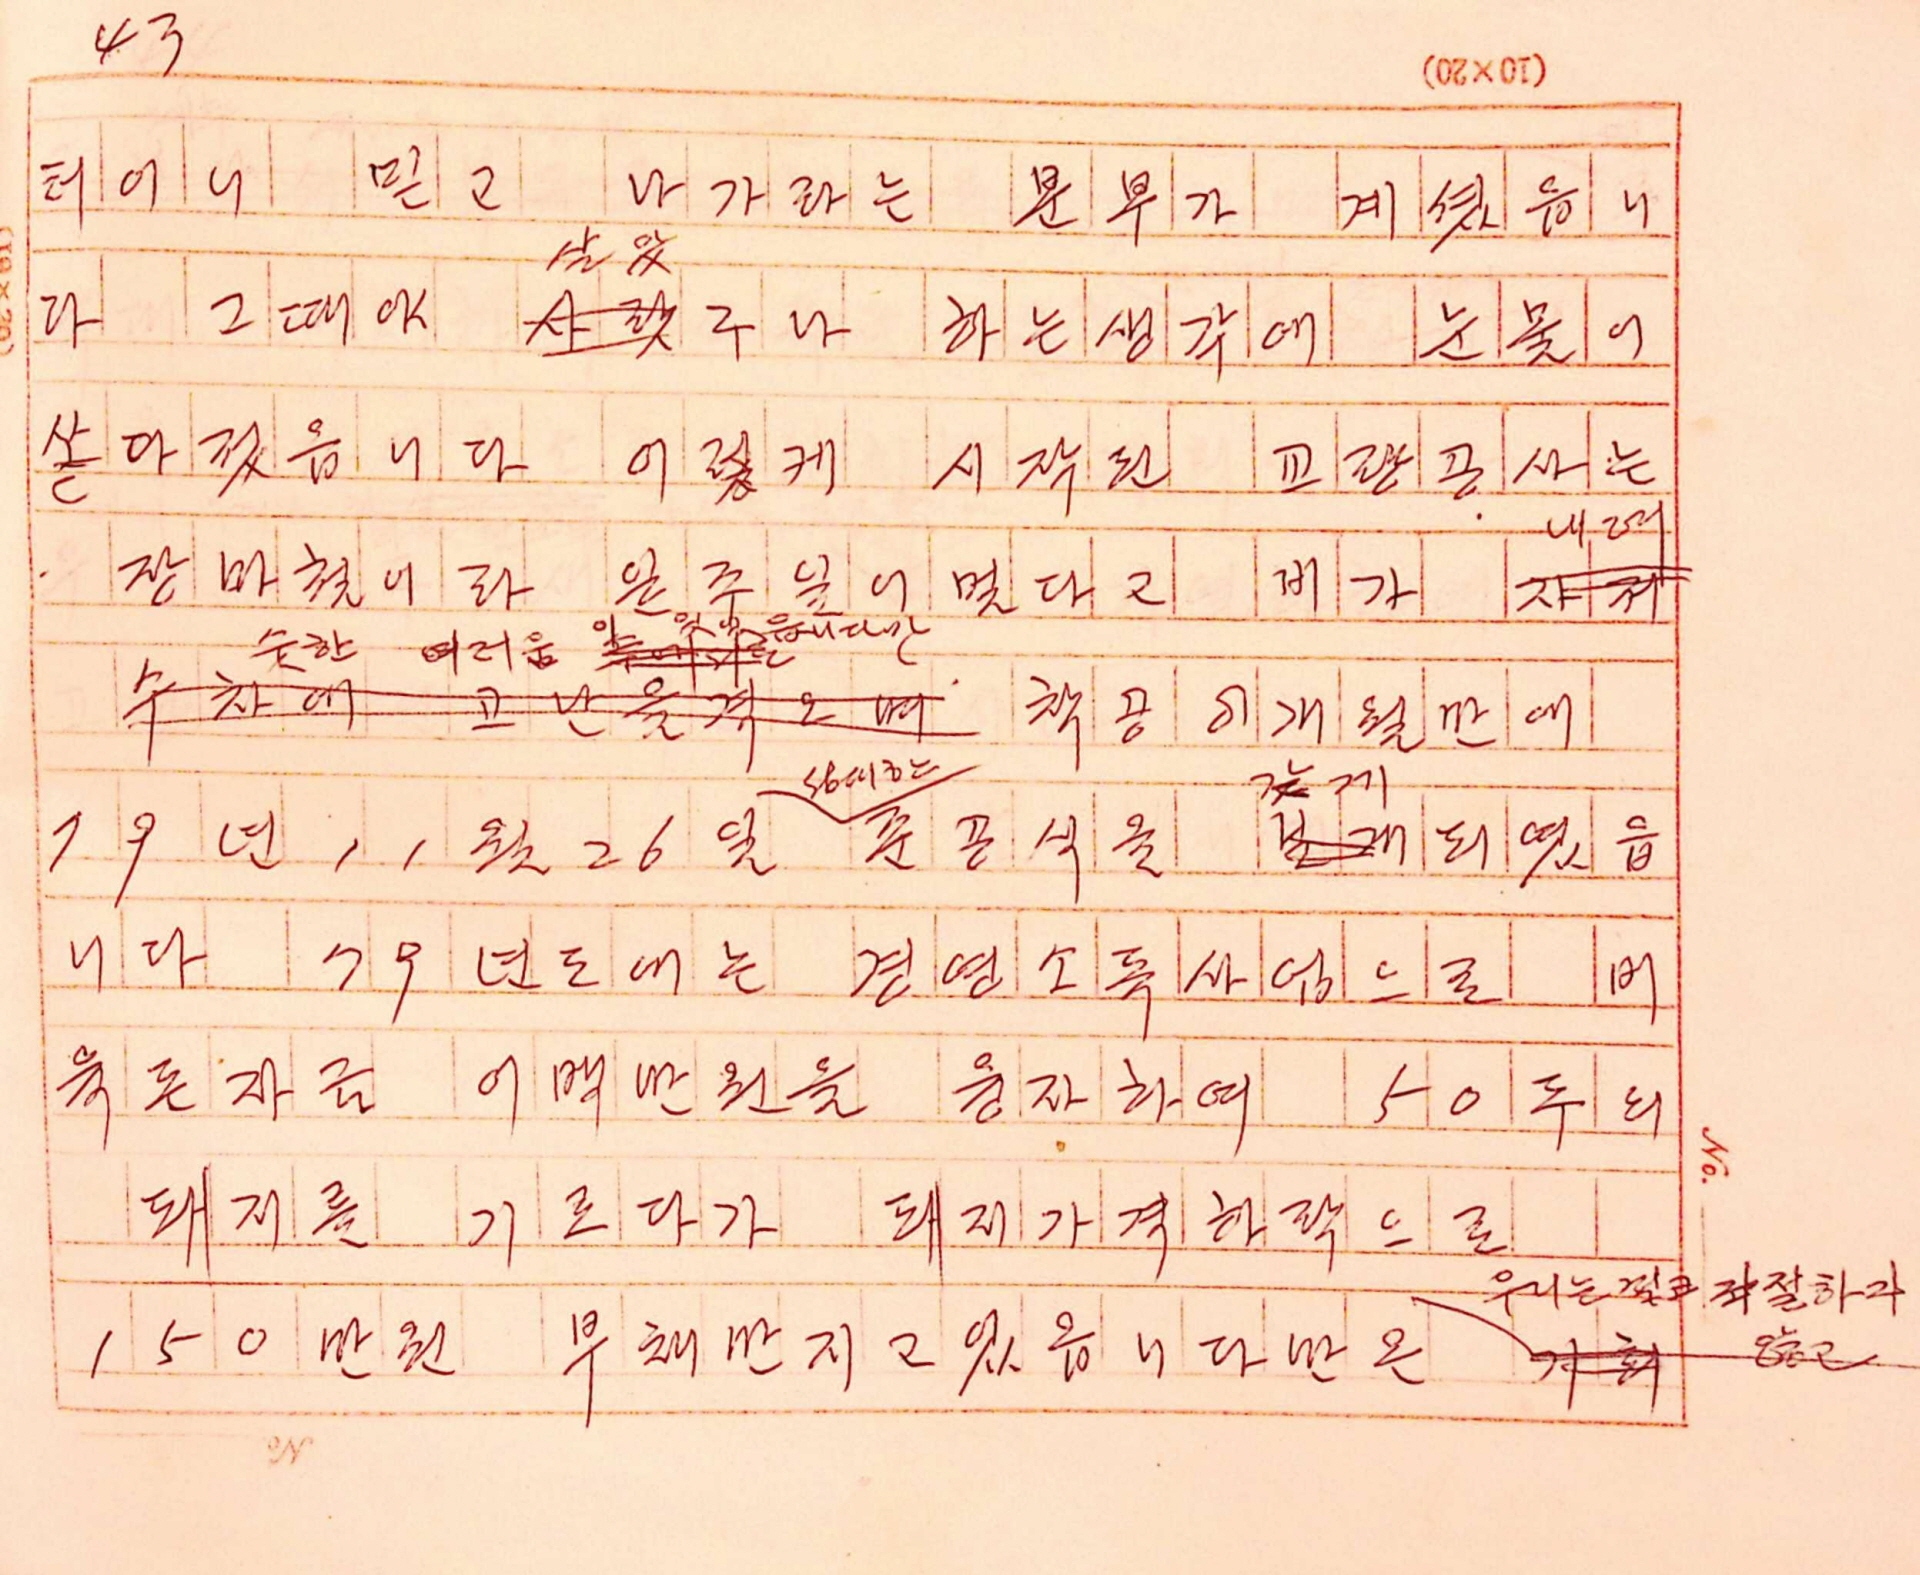 43
(10×20)
터이니 믿고 나가라는 분부가 계셨읍니
살았
다 그때야 사랏구나 하는생각에 눈물이
쏟아젔읍니다 이렇게 시작된 교량공사는
내려
장마철이라 일주일이 멀다고 비가
숫한 어려움 읍니다만
수차에 고난을격으며 착공 6개월만에
갖게
79년 11월26일 준공식을 보게되였읍
니다 79년도에는 경영소득사업으로 비
육돈자금 이백만원을 융자하여 50두의
돼지를 기르다가 돼지가격하락으로
우리는 좌절하지
않고
150만원 부채만지고있읍니다만은
No.
No